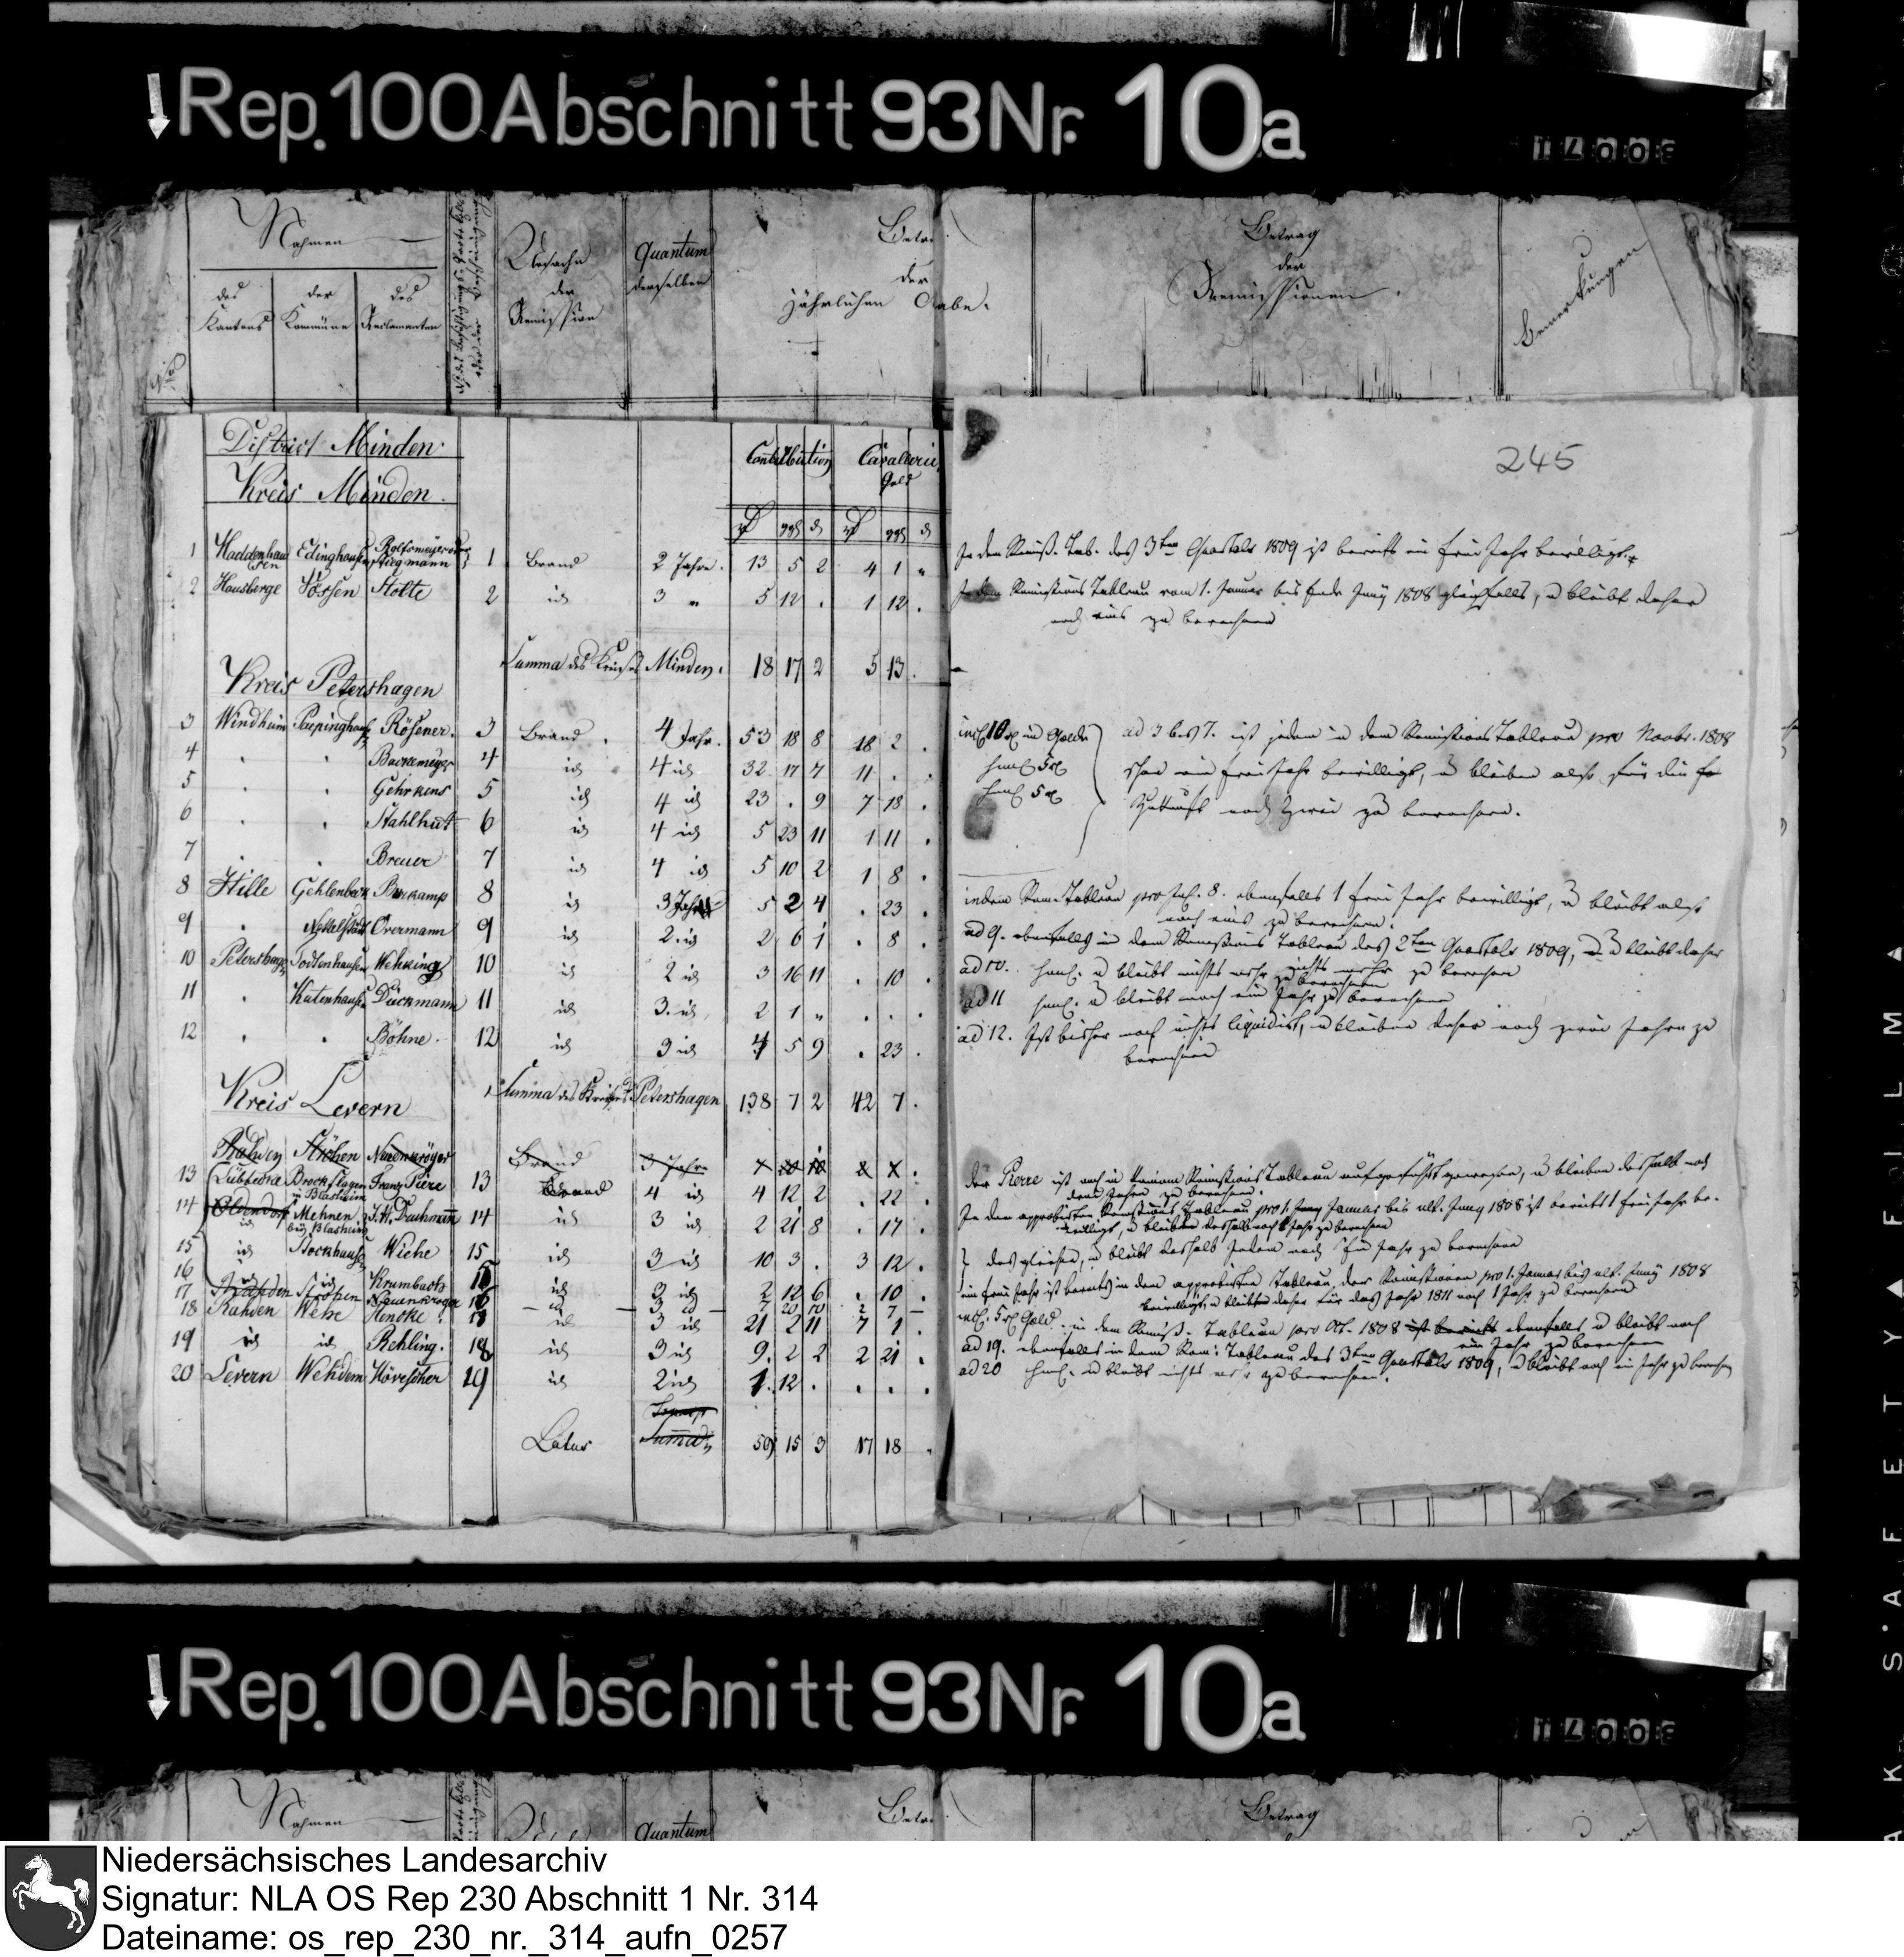 Rep. 100 Abschnitt 93 Nr. 10a
Nahmen
des Kantons
der Kommüne
des Reclamanten
Ursache der Remission
Quantum derselben
Betr.
der
jährlichen Abgabe.
Betrag
der
Remissionen.
Bemerkungen
245
District Minden
Kreis Minden.
Contribution
Cavallerie Geld
1 Haddenhausen Edinghausen Rolfsmeyer oder Stiegmann 1 Brand 2 Jahre. 13 5 2 4 1 "
In dem Remiss. Tab. des 3ten Quartals 1809 ist bereits ein frei Jahr bewilligt.
2 Hausberge Vössen Stolte 2 id 3 " 5 12 . 1 12 .
In dem Remissions Tableau vom 1. Januar bis Ende Juny 1808 gleichfalls, u bleibt daher
noch eins zu berechnen
Summa des Kreises Minden. 18 17 2 5 13 .
Kreis Petershagen
3 Windheim Paepinghausen Rösener. 3 Brand. 4 Jahr. 53 18 8 18 2 .
4 . . Buckemeyer 4 id 4 id 32 17 7 11 . .
5 . . Gehrkens 5 id 4 id 23 . 9 7 18 .
6 . . Stahlhut 6 id 4 id 5 23 11 1 11 .
7 . . Breuer 7 id 4 id 5 10 2 1 8 .
ad 3 bis 7. ist jedem in dem Remissions Tableau pro Novbr. 1808
schon ein frei Jahr bewilligt, u bleiben also für die
Zukunft noch zwei zu berechnen.
8 Hille Gehlenbeck Buckamp 8 id 3 Jahre 5 2 4 . 23 .
in dem Rem. Tableau pro Jul. 8. ebenfalls 1 frei Jahr bewilligt, u bleibt also
noch eins zu berechnen.
9 . Nettelstädt Overmann 9 id 2. id 2 6 1 . 8 .
ad 9. ebenfalls in dem Remissions Tableau des 2ten Quartals 1809, u bleibt daher
nichts mehr zu berechnen
10 Petershagen Todtenhausen Wehking 10 id 2 id 3 16 11 . 10 .
ad 10. u bleibt nichts mehr zu berechnen
11 . Kutenhausen Dückmann 11 id 3. id, 2 1 " . . .
ad 11 u bleibt noch ein Jahr zu berechnen
12 . . Böhne. 12 id 3 id 4 5 9 . 23 .
ad 12. Ist bisher noch nichts liquidirt, u bleiben daher noch zwei Jahre zu
berechnen
Summa des Kreises Petershagen 138 7 2 42 7 .
Kreis Levern
Rahden Ströhen Neuenkröger Brand 3 Jahre
13 Lübbecke Brockhagen in Blasheim Franz Piere 13 Brand 4 id 4 12 2 . 22 .
der Pierre ist noch in keinem Remissions Tableau aufgeführt gewesen, u bleiben deshalb noch
drei Jahre zu berechnen.
14 Oldendorf id Mehnen bey Blasheim J. H. Dachmann 14 id 3 id 2 21 8 . 17 .
In dem approbirten Remissions Tableau pro 1. Januar bis ult. Juny 1808 ist bereits 1 frei Jahr be-
willigt, u bleibt deshalb noch 1 Jahr zu berechnen
15 id Stockhausen Wiehe 15 id 3 id 10 3 . 3 12 .
desgleichen, u bleibt deshalb jedem noch Ein Jahr zu berechnen
16 id id Krumbach 16 id 3 id 2 12 6 . 10 .
17 Rahden Ströhen Neuenkröger id 3 id 7 20 10 2 7 —
ein frei Jahr ist bereits in dem approbirten Tableau der Remissionen pro 1. Januar bis ult. Juny 1808
bewilligt, u bleibt daher für das Jahr 1811 noch 1 Jahr zu berechnen
18 Rahden Wehe Hencke. id 3 id 21 2 11 7 1 .
in dem Remiss. Tableau pro Oct. 1808 ist bereits ebenfalls u bleibt noch
ein Jahr zu berechnen
19 id id Rehling. 18 id 3 id 9. 2 2 2 21 .
ad 19. ebenfalls in dem Rem: Tableau des 3ten Quartals 1809, u bleibt noch ein Jahr zu berechnen
20 Levern Wehdem Hövescher 19 id 2 id 1. 12 . . . .
ad 20 u bleibt nichts mehr zu berechnen.
Latus Summa 59 15 3 17 18 "
Rep. 100 Abschnitt 93 Nr. 10a
Nahmen
Quantum
Betr.
Betrag
SAFETY FILM
Niedersächsisches Landesarchiv
Signatur: NLA OS Rep 230 Abschnitt 1 Nr. 314
Dateiname: os_rep_230_nr._314_aufn_0257